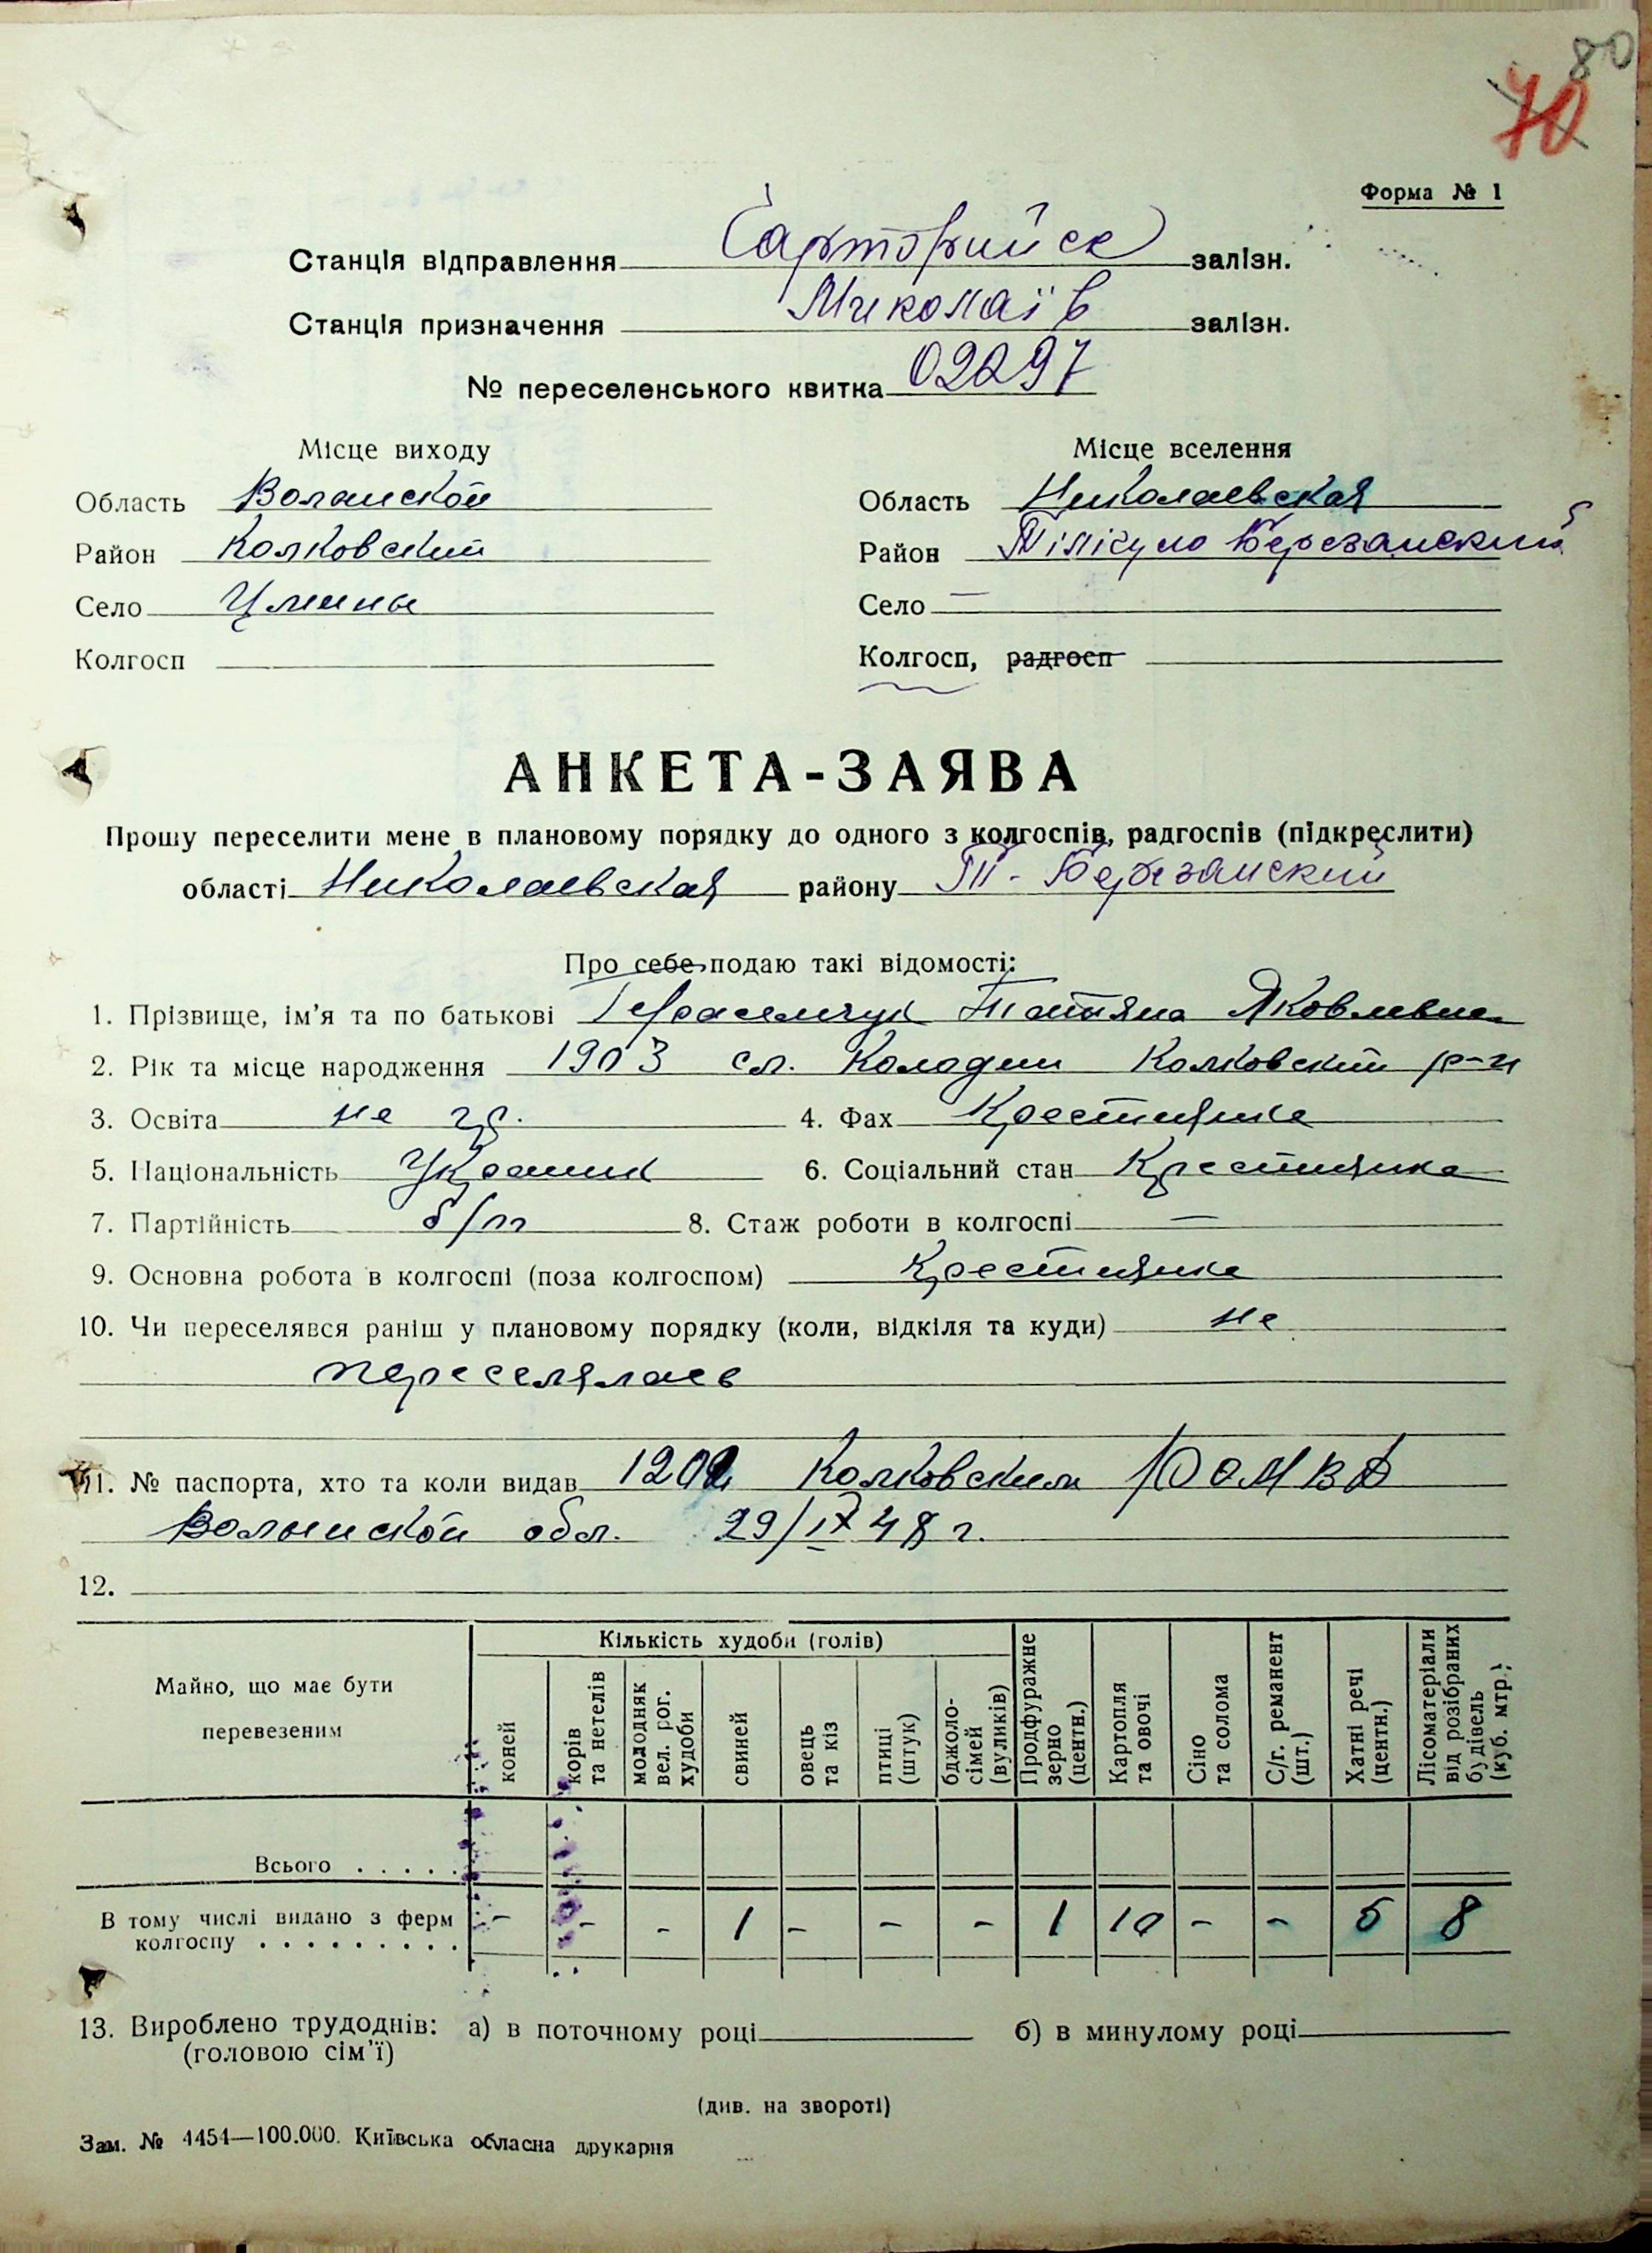 80
70
Форма № 1
Станція відправлення Чарторийск залізн.
Станція призначення Миколаїв залізн.
№ переселенського квитка 02297
Місце виходу Місце вселення
Область Волынской Область Николаевская
Район Колковский Район Тілігуло Березанский
Село Цмины Село —
Колгосп Колгосп, радгосп
АНКЕТА-ЗАЯВА
Прошу переселити мене в плановому порядку до одного з колгоспів, радгоспів (підкреслити)
області Николаевская району Ти- Березанский
Про себе подаю такі відомості:
1. Прізвище, ім'я та по батькові Герасимчук Татяна Яковлевна
2. Рік та місце народження 1903 сл. Колодии Колковский р-н
3. Освіта не гр. 4. Фах Крестиянка
5. Національність Украинк 6. Соціальний стан Крестиянка
7. Партійність б/п 8. Стаж роботи в колгоспі —
9. Основна робота в колгоспі (поза колгоспом) Крестиянка
10. Чи переселявся раніш у плановому порядку (коли, відкіля та куди) не
переселялась
11. № паспорта, хто та коли видав 1202 Колковским РОМВД
Волынской обл. 29/IX 48 г.
12.
Майно, що має бути перевезеним
Кількість худоби (голів)
коней
корів та нетелів
молодняк вел. рог. худоби
свиней
овець та кіз
птиці (штук)
бджоло-сімей (вуликів)
Продфуражне зерно (центн.)
Картопля та овочі
Сіно та солома
С/г. реманент (шт.)
Хатні речі (центн.)
Лісоматеріали від розібраних будівель (куб. мтр.)
Всього . . . . .
В тому числі видано з ферм - - - 1 - - - 1 10 - - 5 8
колгоспу . . . . . . . . .
13. Вироблено трудоднів: а) в поточному році б) в минулому році
(головою сім'ї)
(див. на звороті)
Зам. № 4454—100.000. Київська обласна друкарня